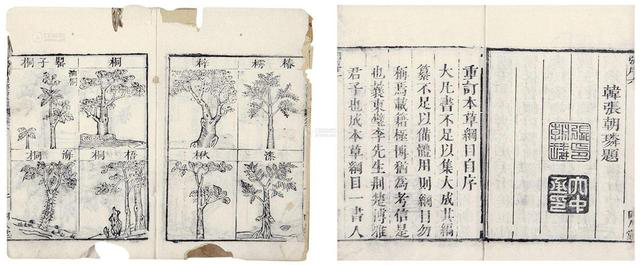 椿
樗
漆
楸
桐
罌子桐
油桐
梧桐
海桐
韓張朝璘題
重訂本草綱目自序
大凡書不足以集大成其編
纂不足以備體用則綱目勿
稱焉載籍極博猶為考信是
也東璧李先生荊楚博雅
君子也成本草綱目一書人